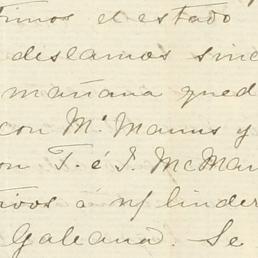 timos el estado
deslamos sinc
mañana qued
con Mc. Manus y
on T. é I. McMan
tivos á n/ linder
Galeana. Se